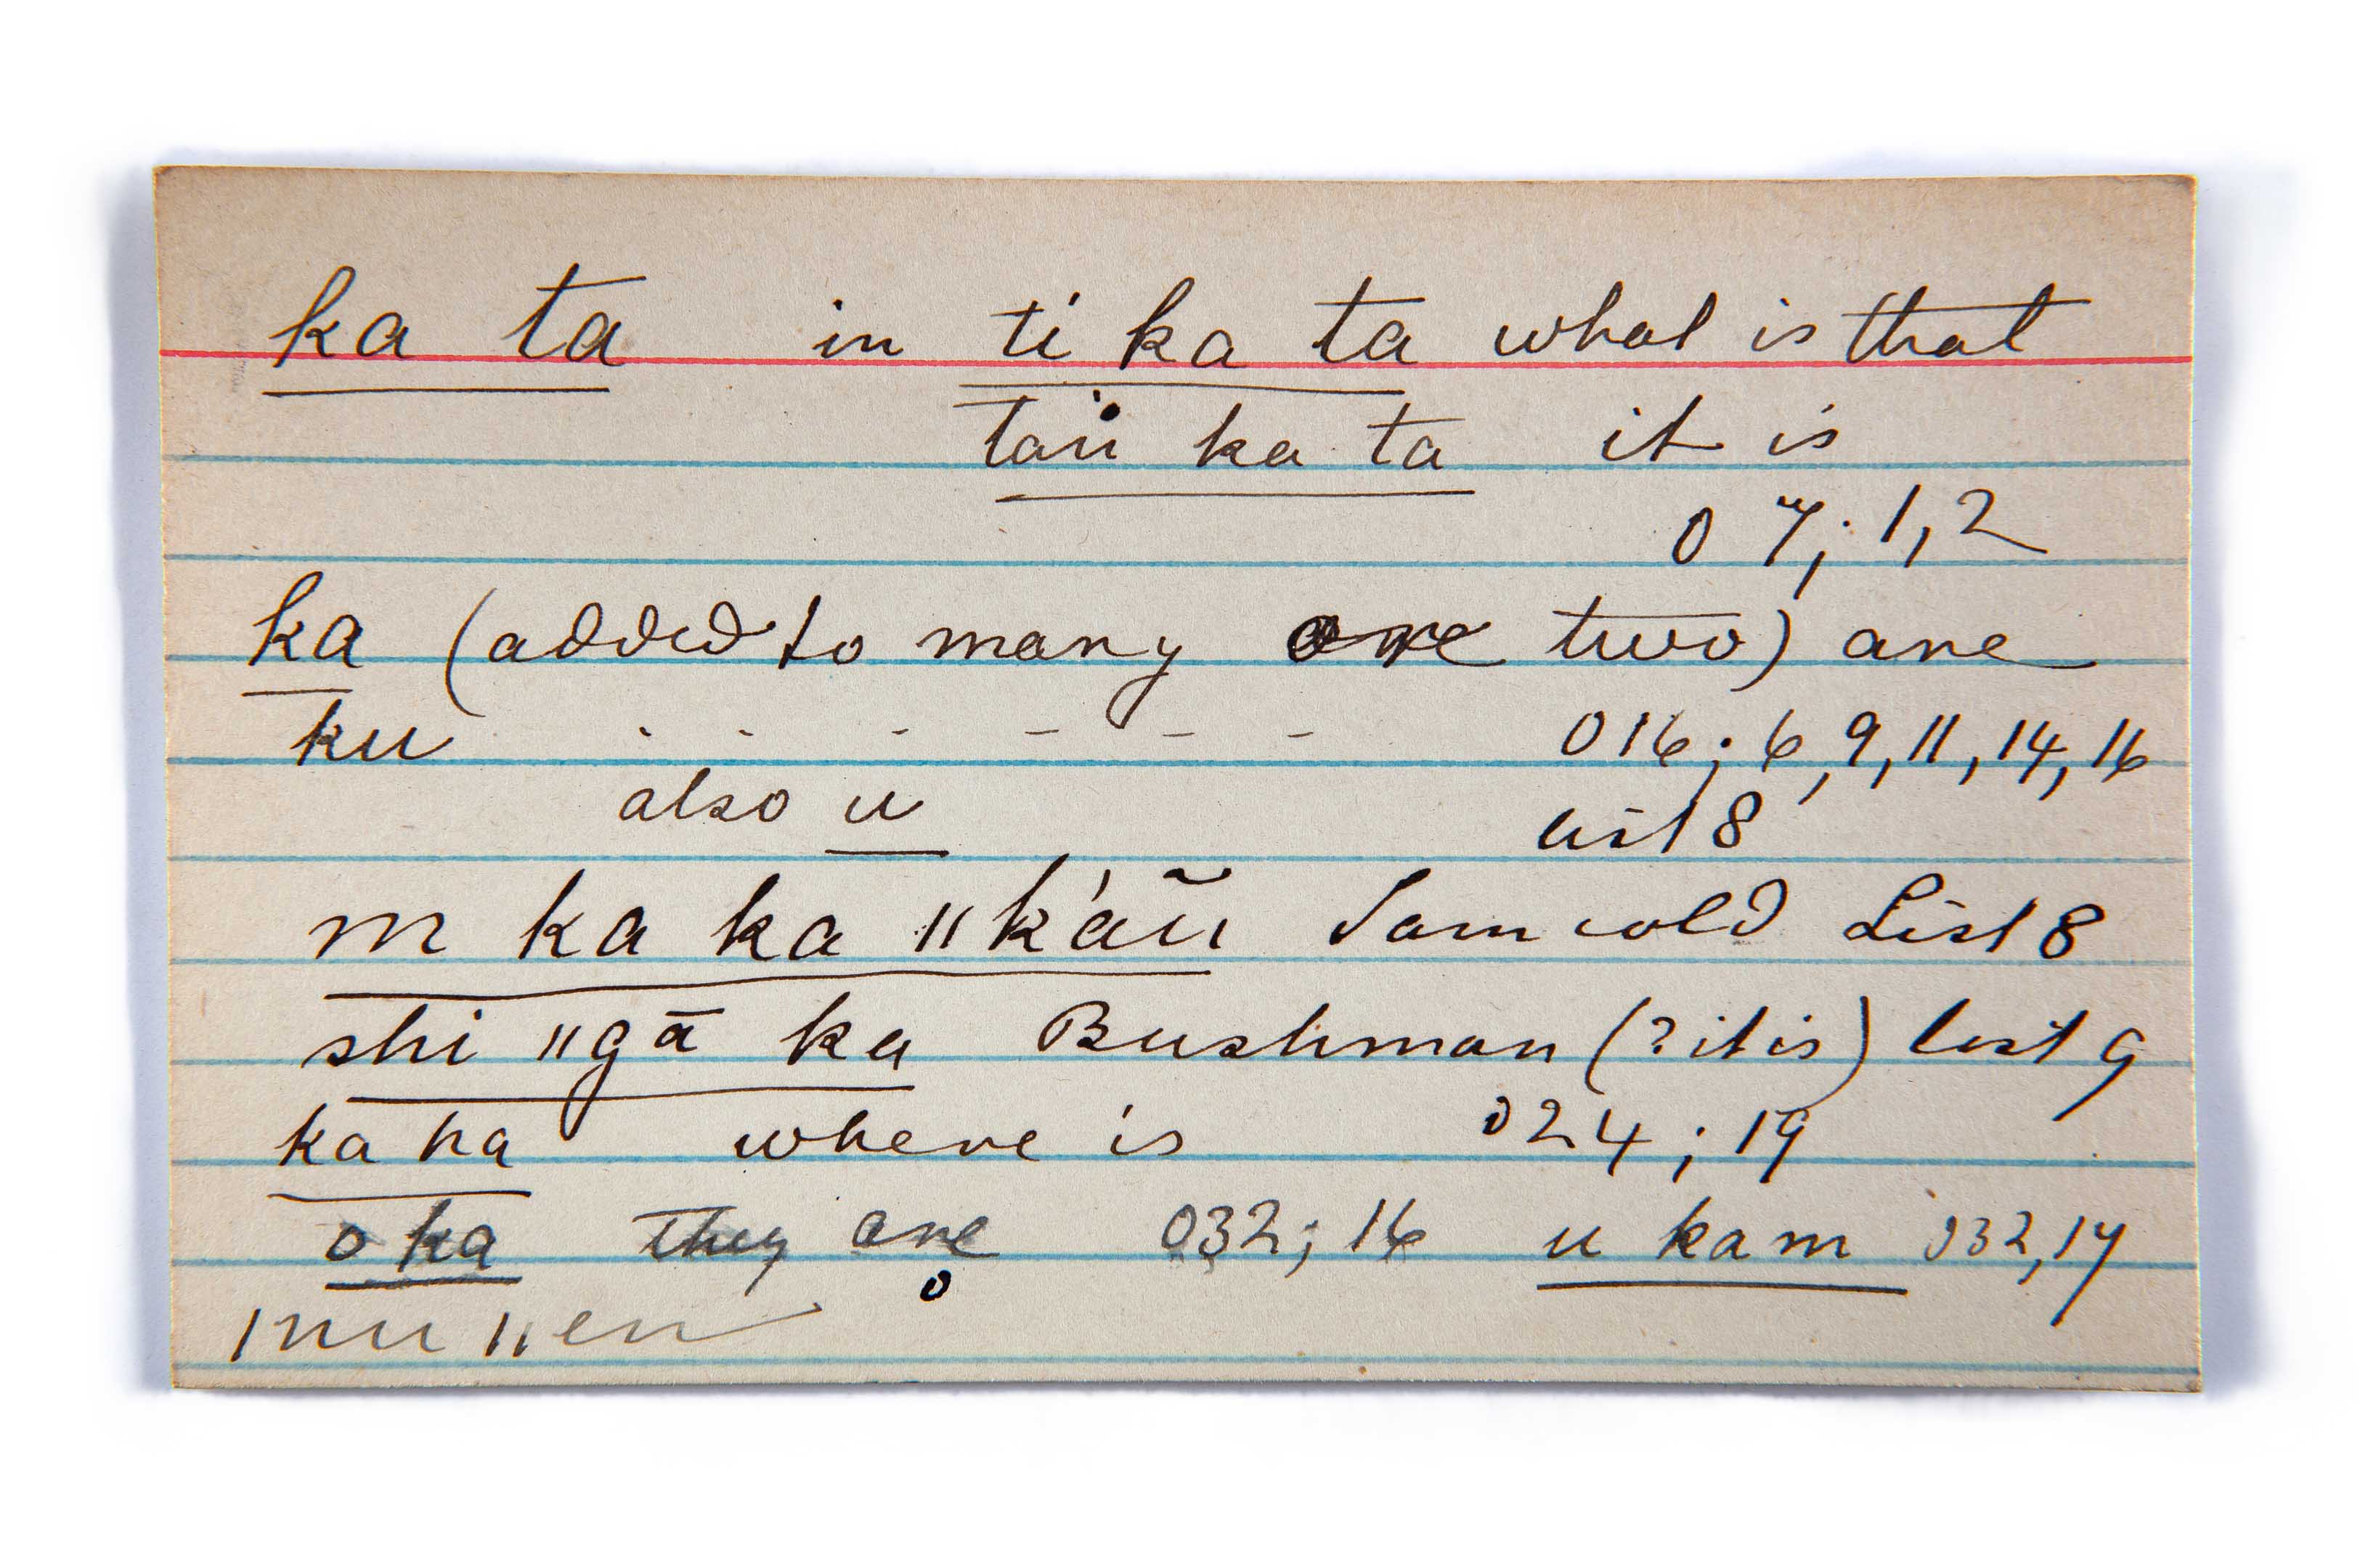 ka ta in ti ka ta what is that
taü ka ta it is
07; 1,2
ka (added to many are two) are
ku - - - - - - 016; 6,9,11,14,16
also u list 8
m ka ka ǁk'ãũ I am cold List 8
shi ǁgā ka Bushman (? it is) list 9
ka ha where is 024; 19
o ka they are 032; 16 u kam 032,17
ǀnu ǁen